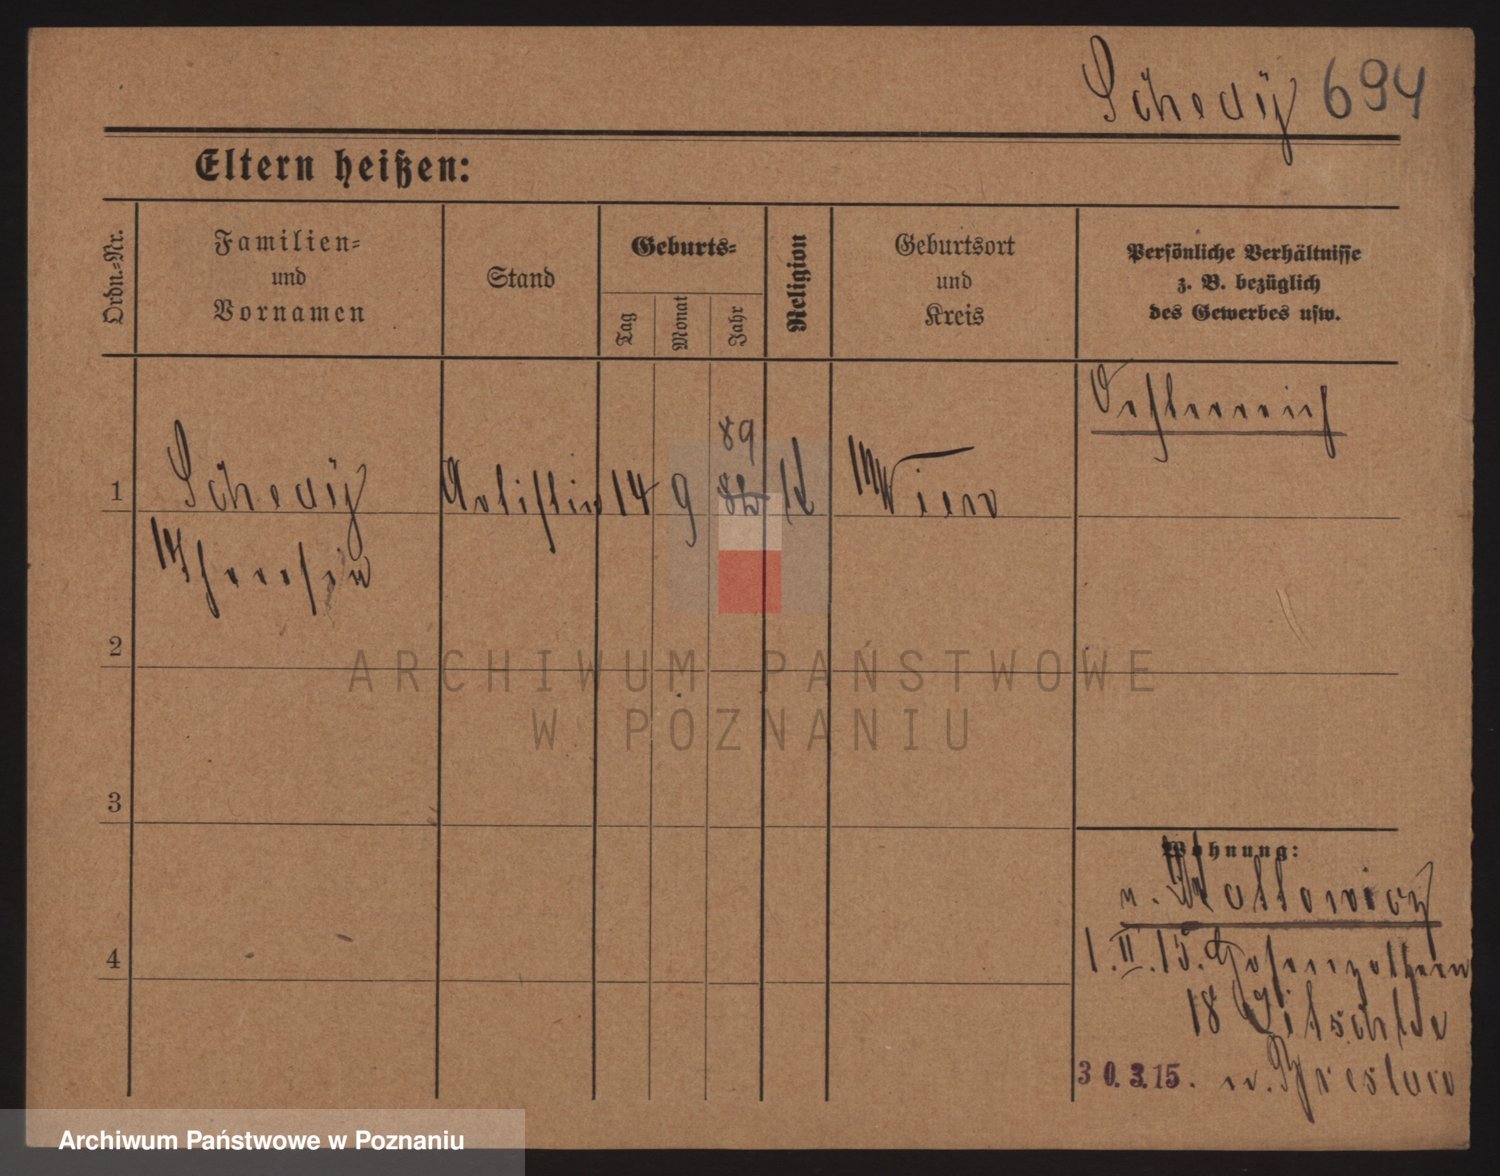 Schediz 694
Eltern heißen:
Ordn.=Nr.
Familien=
und
Vornamen
Stand
Geburts=
Tag
Monat
Jahr
Religion
Geburtsort
und
Kreis
Persönliche Verhältnisse
z. B. bezüglich
des Gewerbes usw.
Oesterreich
89
1 Artistin 14 9 82 K Wien
Theresia
2
ARCHIWUM PAŃSTWOWE
W POZNANIU
3
Wohnung:
n. Kattowicz
4
1.II.15. Hohenzollern
18
30.3.15. n. Breslau
Archiwum Państwowe w Poznaniu